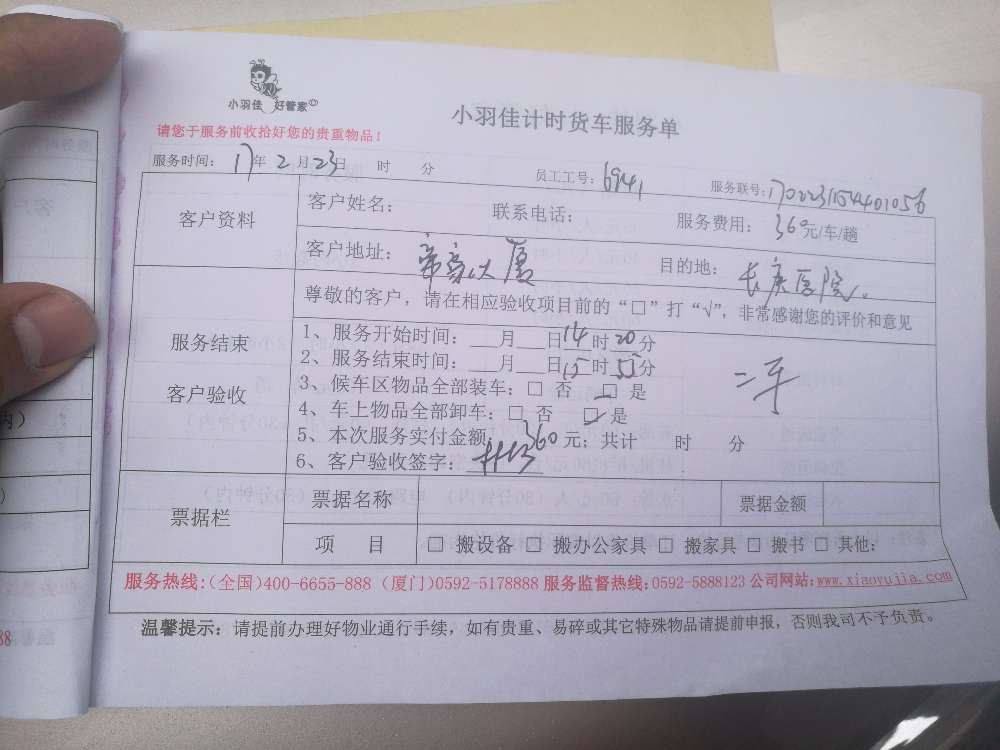 小羽佳 好管家
小羽佳计时货车服务单
请您于服务前收拾好您的贵重物品！
服务时间： 17年 2月 23日 时 分 员工工号：6941 服务联号：1702231154401056
客户资料
客户姓名： 联系电话： 服务费用： 360元/车/趟
客户地址： 大厦 目的地： 长庚医院
尊敬的客户，请在相应验收项目前的“□”打“√”，非常感谢您的评价和意见
服务结束
客户验收
1、服务开始时间：___月___日14时20分
2、服务结束时间：___月___日15时55分
二车
3、候车区物品全部装车：□ 否 □ 是
4、车上物品全部卸车：□ 否 □ 是
5、本次服务实付金额：360元；共计 时 分
6、客户验收签字：
票据栏
票据名称 票据金额
项 目 □ 搬设备 □ 搬办公家具 □ 搬家具 □ 搬书 □ 其他：
服务热线：(全国)400-6655-888 (厦门)0592-5178888 服务监督热线：0592-5888123 公司网站：www.xiaoyujia.com
温馨提示：请提前办理好物业通行手续，如有贵重、易碎或其它特殊物品请提前申报，否则我司不予负责。
内）
88